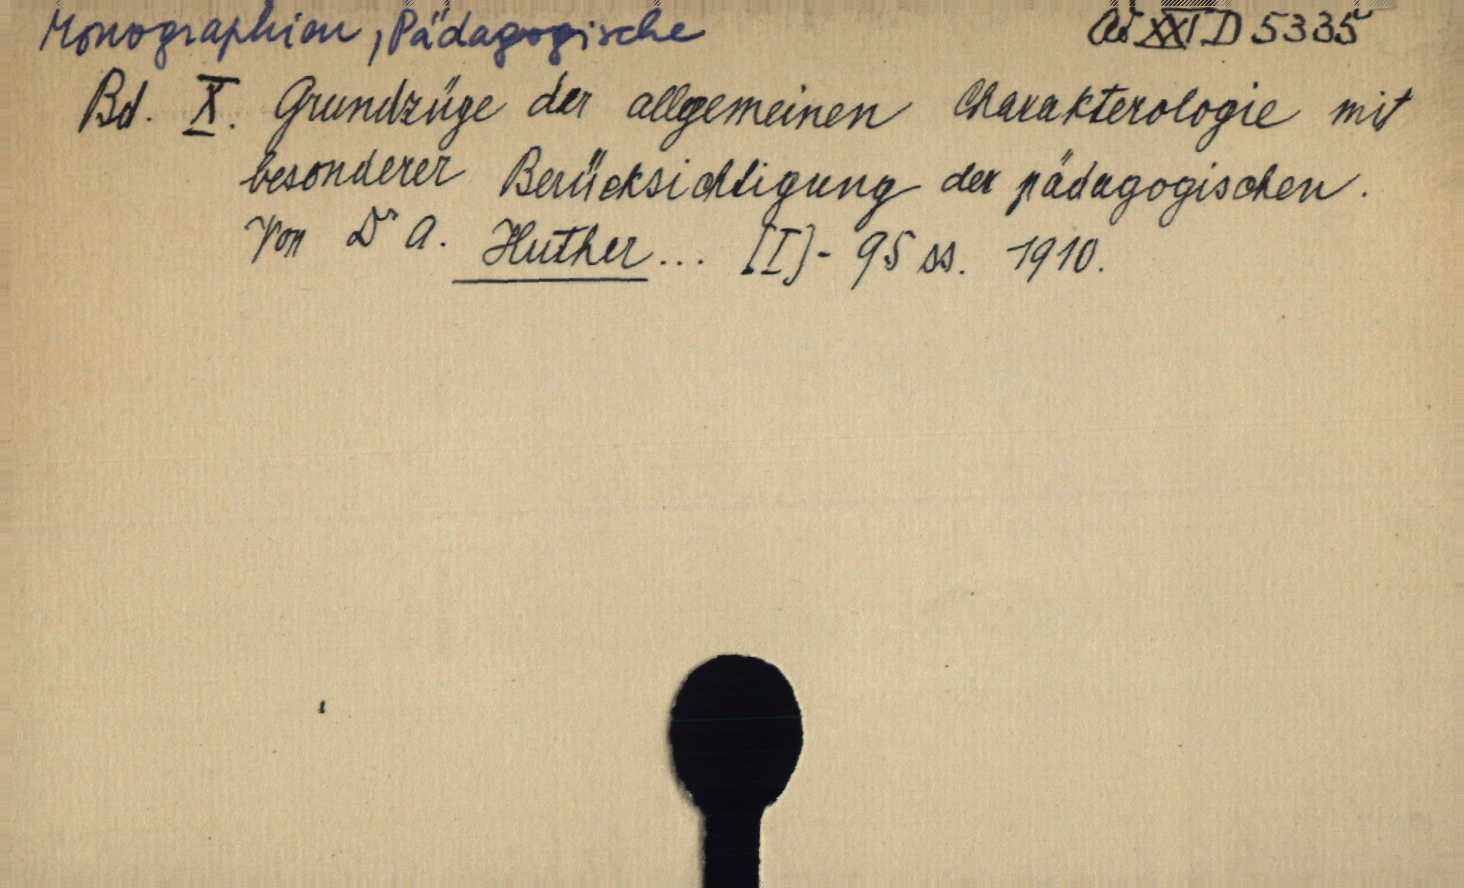 Monographien, Pädagogische Ad XXI D 5335
Bd. X. Grundzüge der allgemeinen Charakterologie mit
besonderer Berücksichtigung der pädagogischen.
Von Dr A. Huther... [I]- 95 ss. 1910.